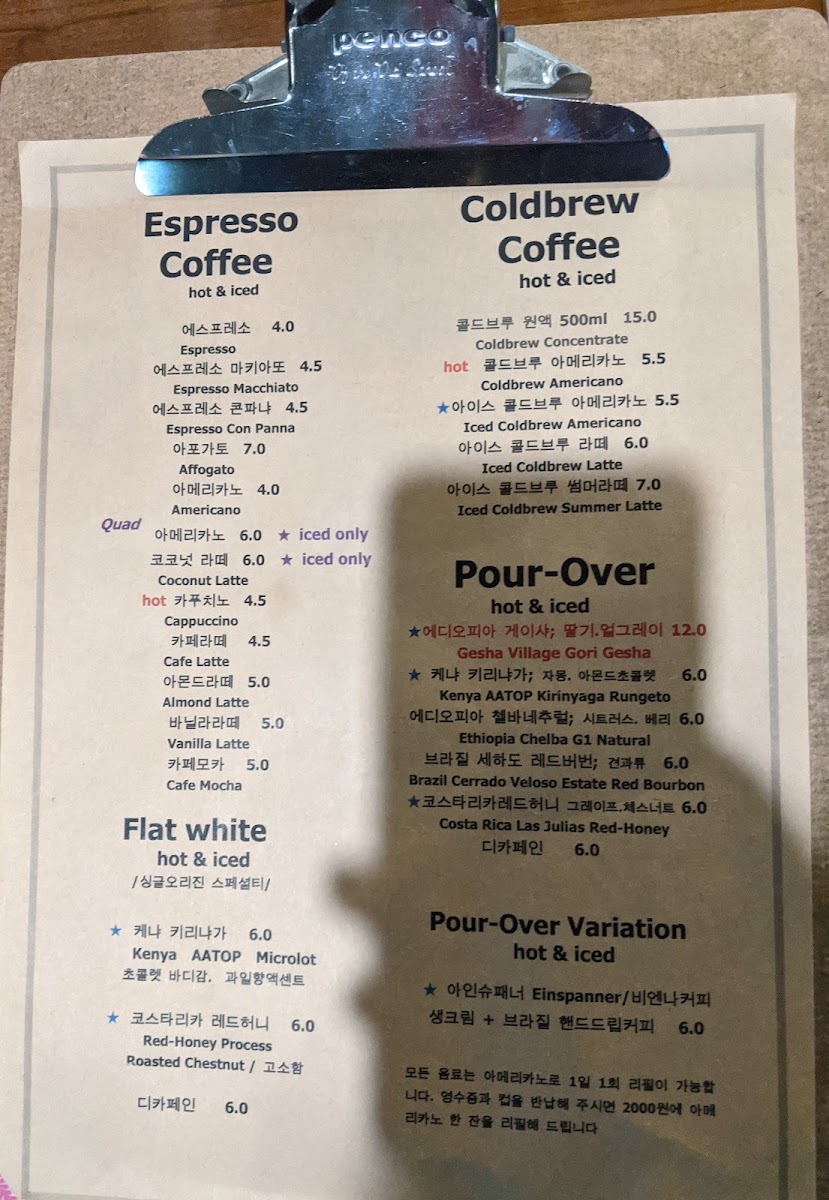 penco
Espresso
Coffee
hot & iced
에스프레소 4.0
Espresso
에스프레소 마키아또 4.5
Espresso Macchiato
에스프레소 콘파냐 4.5
Espresso Con Panna
아포가토 7.0
Affogato
아메리카노 4.0
Americano
Quad 아메리카노 6.0 ★ iced only
코코넛 라떼 6.0 ★ iced only
Coconut Latte
hot 카푸치노 4.5
Cappuccino
카페라떼 4.5
Cafe Latte
아몬드라떼 5.0
Almond Latte
바닐라라떼 5.0
Vanilla Latte
카페모카 5.0
Cafe Mocha
Flat white
hot & iced
/싱글오리진 스페셜티/
★ 케냐 키리냐가 6.0
Kenya AATOP Microlot
초콜렛 바디감. 과일향액센트
★ 코스타리카 레드허니 6.0
Red-Honey Process
Roasted Chestnut / 고소함
디카페인 6.0
Coldbrew
Coffee
hot & iced
콜드브루 원액 500ml 15.0
Coldbrew Concentrate
hot 콜드브루 아메리카노 5.5
Coldbrew Americano
★아이스 콜드브루 아메리카노 5.5
Iced Coldbrew Americano
아이스 콜드브루 라떼 6.0
Iced Coldbrew Latte
아이스 콜드브루 썸머라떼 7.0
Iced Coldbrew Summer Latte
Pour-Over
hot & iced
★에디오피아 게이샤; 딸기.얼그레이 12.0
Gesha Village Gori Gesha
★ 케냐 키리냐가; 자몽. 아몬드초콜렛 6.0
Kenya AATOP Kirinyaga Rungeto
에디오피아 첼바네추럴; 시트러스. 베리 6.0
Ethiopia Chelba G1 Natural
브라질 세하도 레드버번; 견과류 6.0
Brazil Cerrado Veloso Estate Red Bourbon
★코스타리카레드허니 그레이프.체스너트 6.0
Costa Rica Las Julias Red-Honey
디카페인 6.0
Pour-Over Variation
hot & iced
★ 아인슈패너 Einspanner/비엔나커피
생크림 + 브라질 핸드드립커피 6.0
모든 음료는 아메리카노로 1일 1회 리필이 가능합
니다. 영수증과 컵을 반납해 주시면 2000원에 아메
리카노 한 잔을 리필해 드립니다